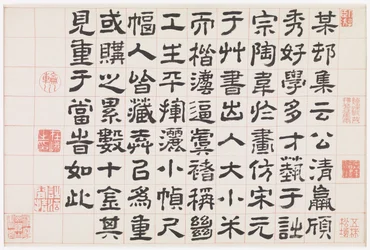 某邨集云公清羸頎
秀好學多才藝于詩
宗陶韋於畫仿宋元
于艸書出入大小米
而楷灋逼虞褚稱
工生平揮灑小幀尺
幅人皆藏弆以為重
或購之累數十金其
見重于當旹如此